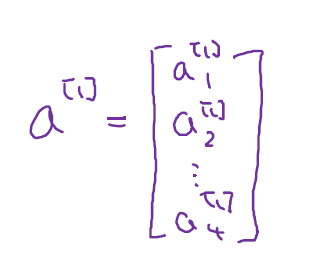 a^[1] = [ a_1^[1]
a_2^[1]
⋮
a_4^[1] ]